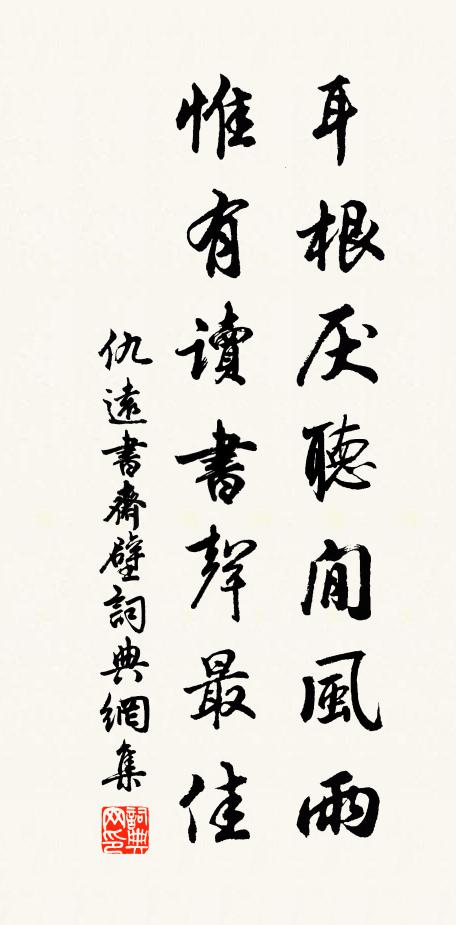 耳根厌聽閒風雨
惟有讀書聲最佳
仇遠書齋壁詞典網集
詞典网印